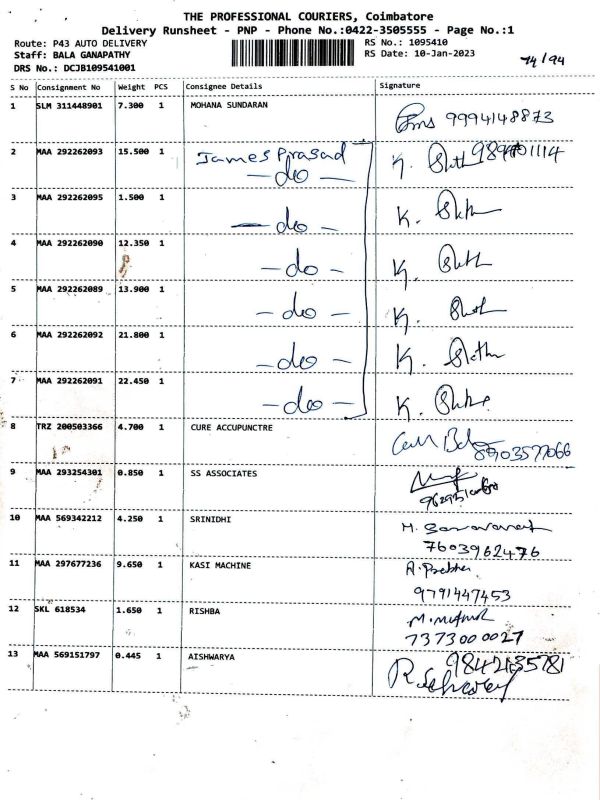 THE PROFESSIONAL COURIERS, Coimbatore
Delivery Runsheet - PNP - Phone No.:0422-3505555 - Page No.:1
Route: P43 AUTO DELIVERY
RS No.: 1095410
Staff: BALA GANAPATHY
RS Date: 10-Jan-2023
DRS No.: DCJB109541001
S No Consignment No Weight PCS Consignee Details Signature
1 SLM 311448901 7.300 1 MOHANA SUNDARAN
9994148873
2 MAA 292262093 15.500 1 James Prasad
-do- K.
3 MAA 292262095 1.500 1
-do- K.
4 MAA 292262090 12.350 1
-do- K.
5 MAA 292262089 13.900 1
-do- K.
6 MAA 292262092 21.800 1
-do- K.
7 MAA 292262091 22.450 1
-do- K.
8 TRZ 200503366 4.700 1 CURE ACCUPUNCTRE
9 MAA 293254301 0.850 1 SS ASSOCIATES
10 MAA 569342212 4.250 1 SRINIDHI
7603962476
11 MAA 297677236 9.650 1 KASI MACHINE
9791447453
12 SKL 618534 1.650 1 RISHBA
7373000027
13 MAA 569151797 0.445 1 AISHWARYA